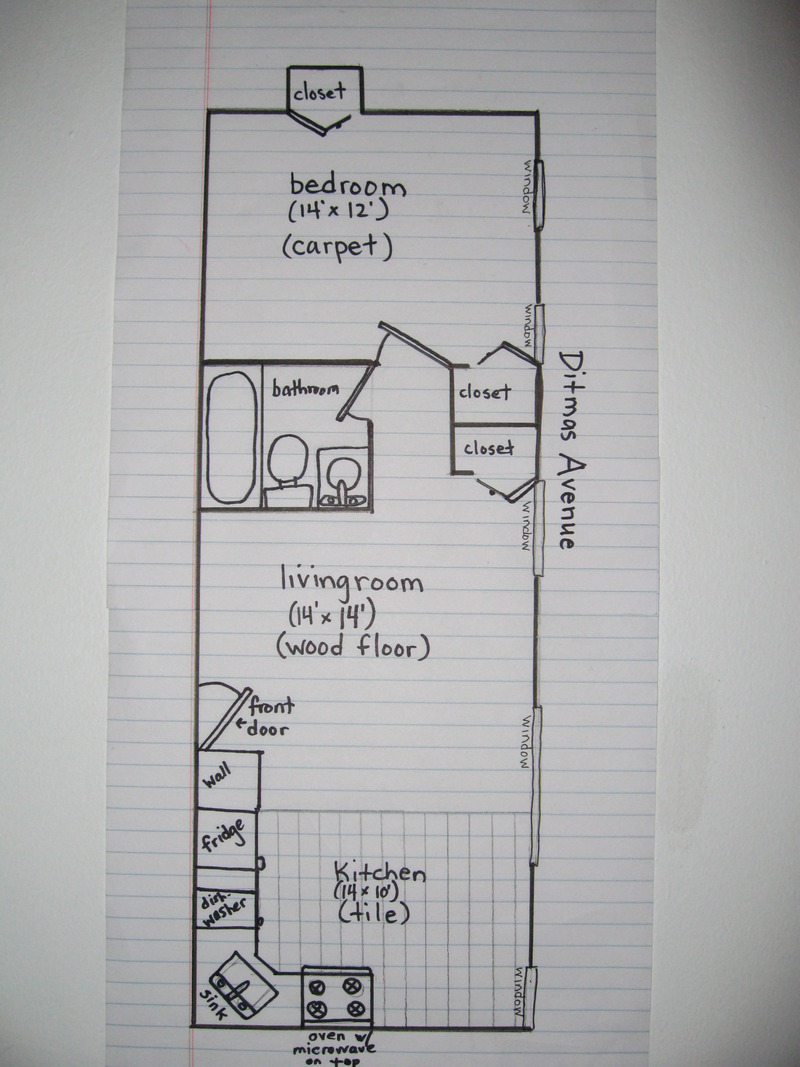 closet
bedroom
(14' x 12')
(carpet)
window
window
Ditmas Avenue
bathroom
closet
closet
window
livingroom
(14' x 14')
(wood floor)
front
← door
window
wall
fridge
Kitchen
(14 x 10')
(tile)
dish-
washer
sink
window
oven w/
microwave
on top